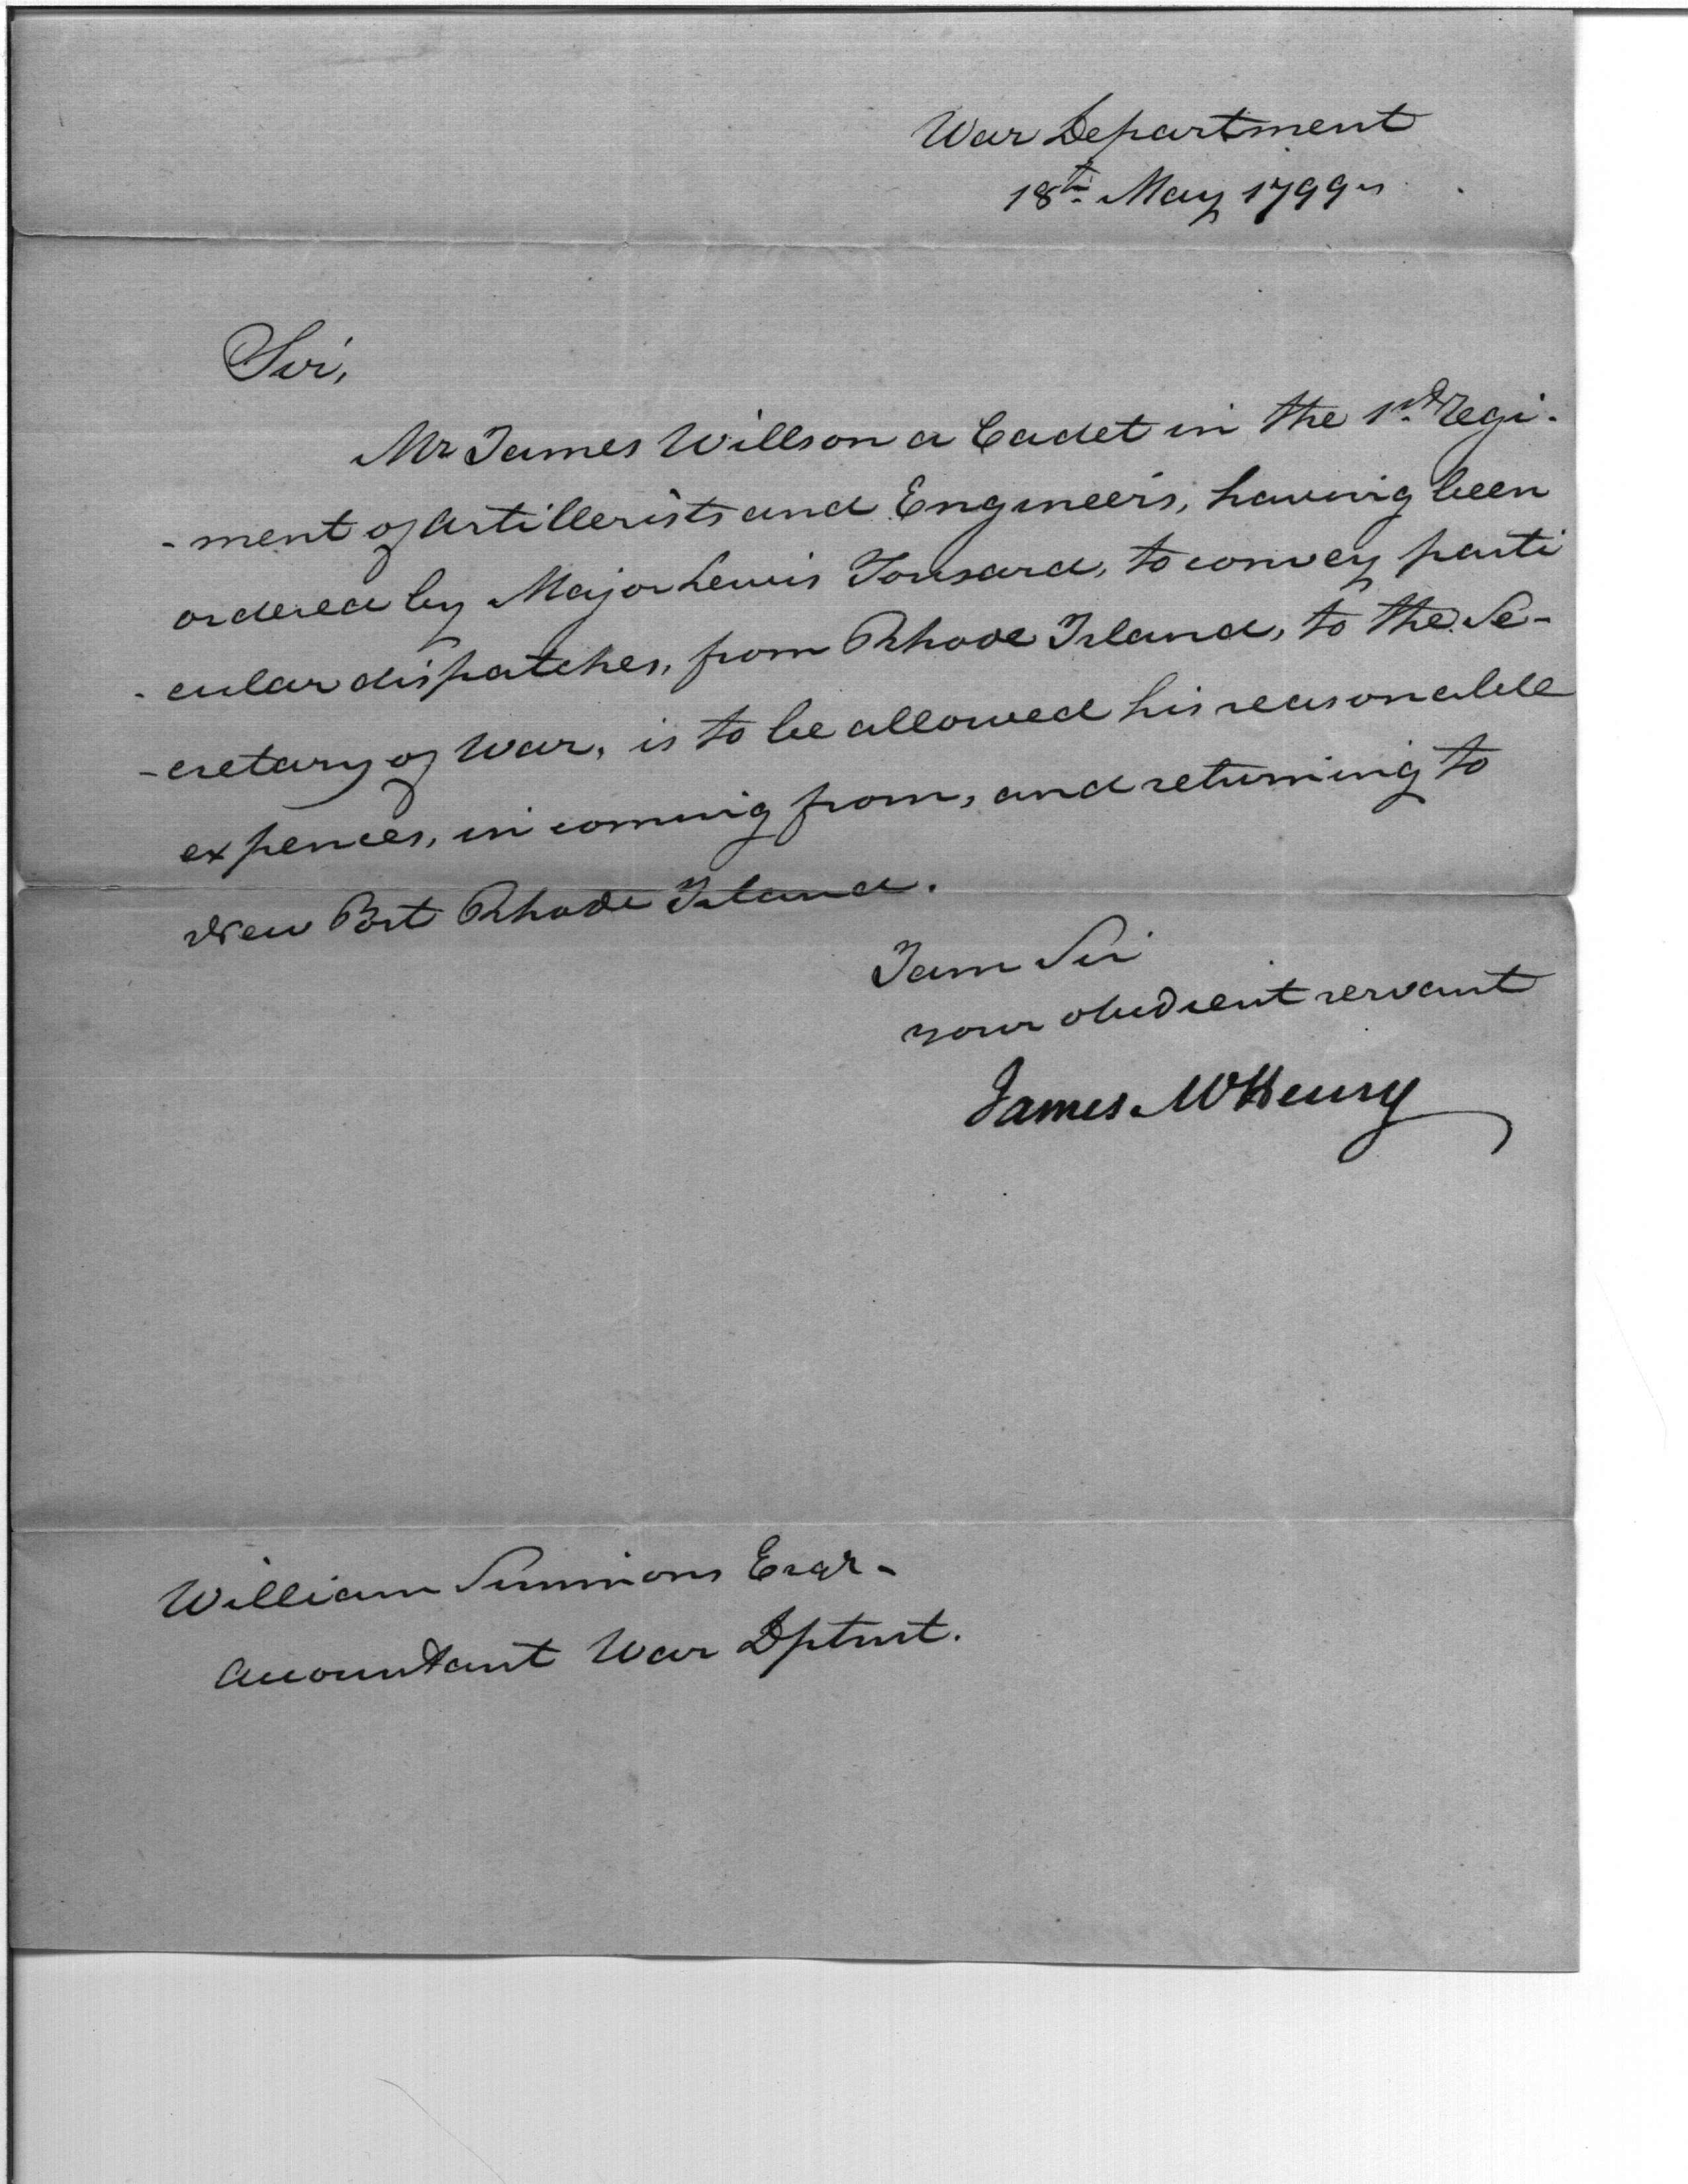 War Department
18th May 1799
Sir,
Mr James Willson a Cadet in the 1st Regi-
-ment of Artillerists and Engineers, having been
ordered by Major Lewis Tousard, to convey parti
-cular dispatches, from Rhode Island, to the Se-
-cretary of War, is to be allowed his reasonable
expences, in coming from, and returning to
New Port Rhode Island.
I am Sir
your obedient servant
James McHenry
William Simmons Esqr-
Accountant War Dptmt.